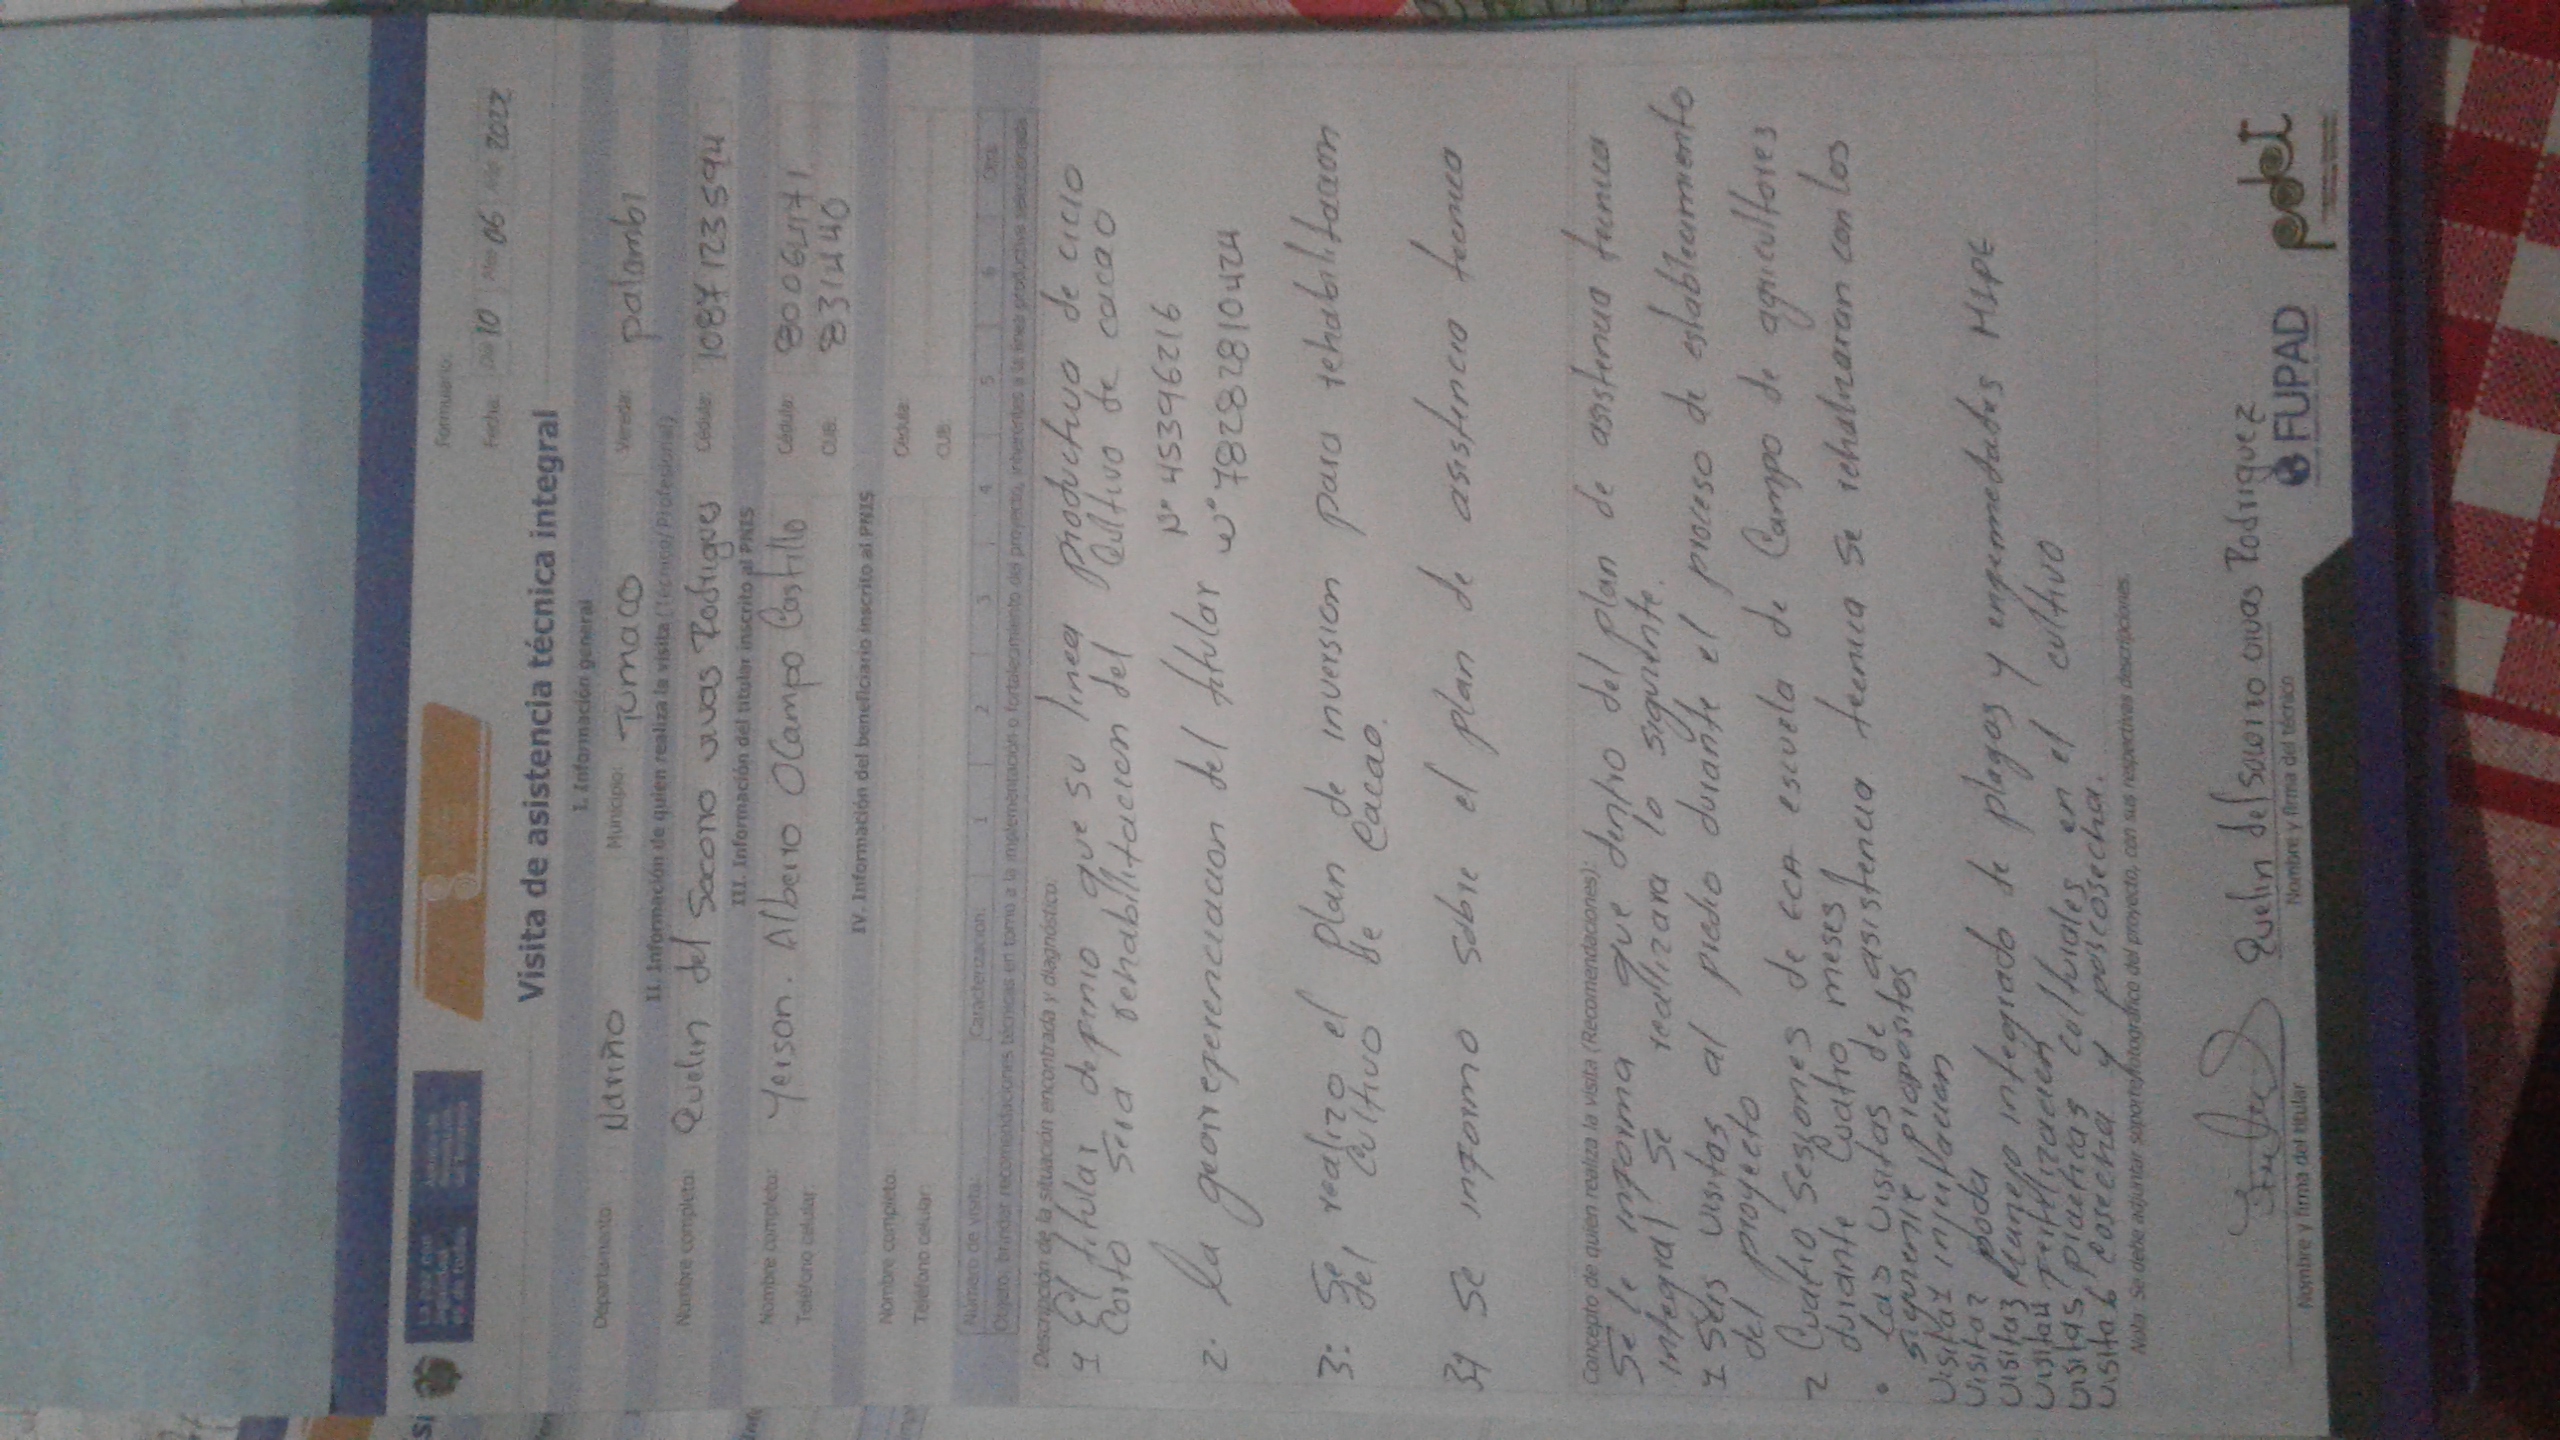 Formulario:
Fecha: Día 10 Mes 06 Año 2022
Visita de asistencia técnica integral
I. Información general
Departamento: Nariño Municipio: Tumaco Vereda: palambi
II. Información de quien realiza la visita (Técnico/Profesional)
Nombre completo: Quelin del Socorro vivas Rodrigues Cédula: 1087123594
III. Información del titular inscrito al PNIS
Nombre completo: Yeison. Albeiro Ocampo Castillo Cédula: 80064171
Teléfono celular: CUB: 831440
IV. Información del beneficiario inscrito al PNIS
Nombre completo: Cédula:
Teléfono celular: CUB:
Número de visita: Caracterización: 1 2 3 4 5 6 Otra
Objeto: brindar recomendaciones técnicas en torno a la implementación o fortalecimiento del proyecto, inherentes a la línea productiva seleccionada.
Descripción de la situación encontrada y diagnóstico:
1 El titular depinio que su linea productivo de ciclo
Corto Sera rehabilitacion del Cultivo de cacao
2. la georreperenciacion del titular N° 45396216
w° 7828281 0424
3: Se realizo el plan de inversion para rehabilitacion
del cultivo de Cacao.
34 Se informo sobre el plan de asistencia tecnica
Concepto de quien realiza la visita (Recomendaciones):
Se le informa que dentro del plan de asistencia tecnica
integral se realizara lo siguiente.
1 Seis visitas al predio durante el proceso de establecimiento
del proyecto
2 Cuatro Sesiones de ECA escuela de Campo de agricultores
durante Cuatro meses
• las visitas de asistencia tecnica se rehalizaran con los
siguiente propositos
Visita 1 injertacion
Visita 2 poda
Visita 3 Manejo integrado de plagas y enfermedades MIPE
Visita 4 Fertilizacion
Visita 5 practicas culturales en el cultivo
Visita 6 Cosecha y poscosecha.
Nota: Se debe adjuntar soporte fotográfico del proyecto, con sus respectivas descripciones.
Quelin del Socorro vivas Rodriguez
Nombre y firma del titular Nombre y firma del técnico
FUPAD pdet